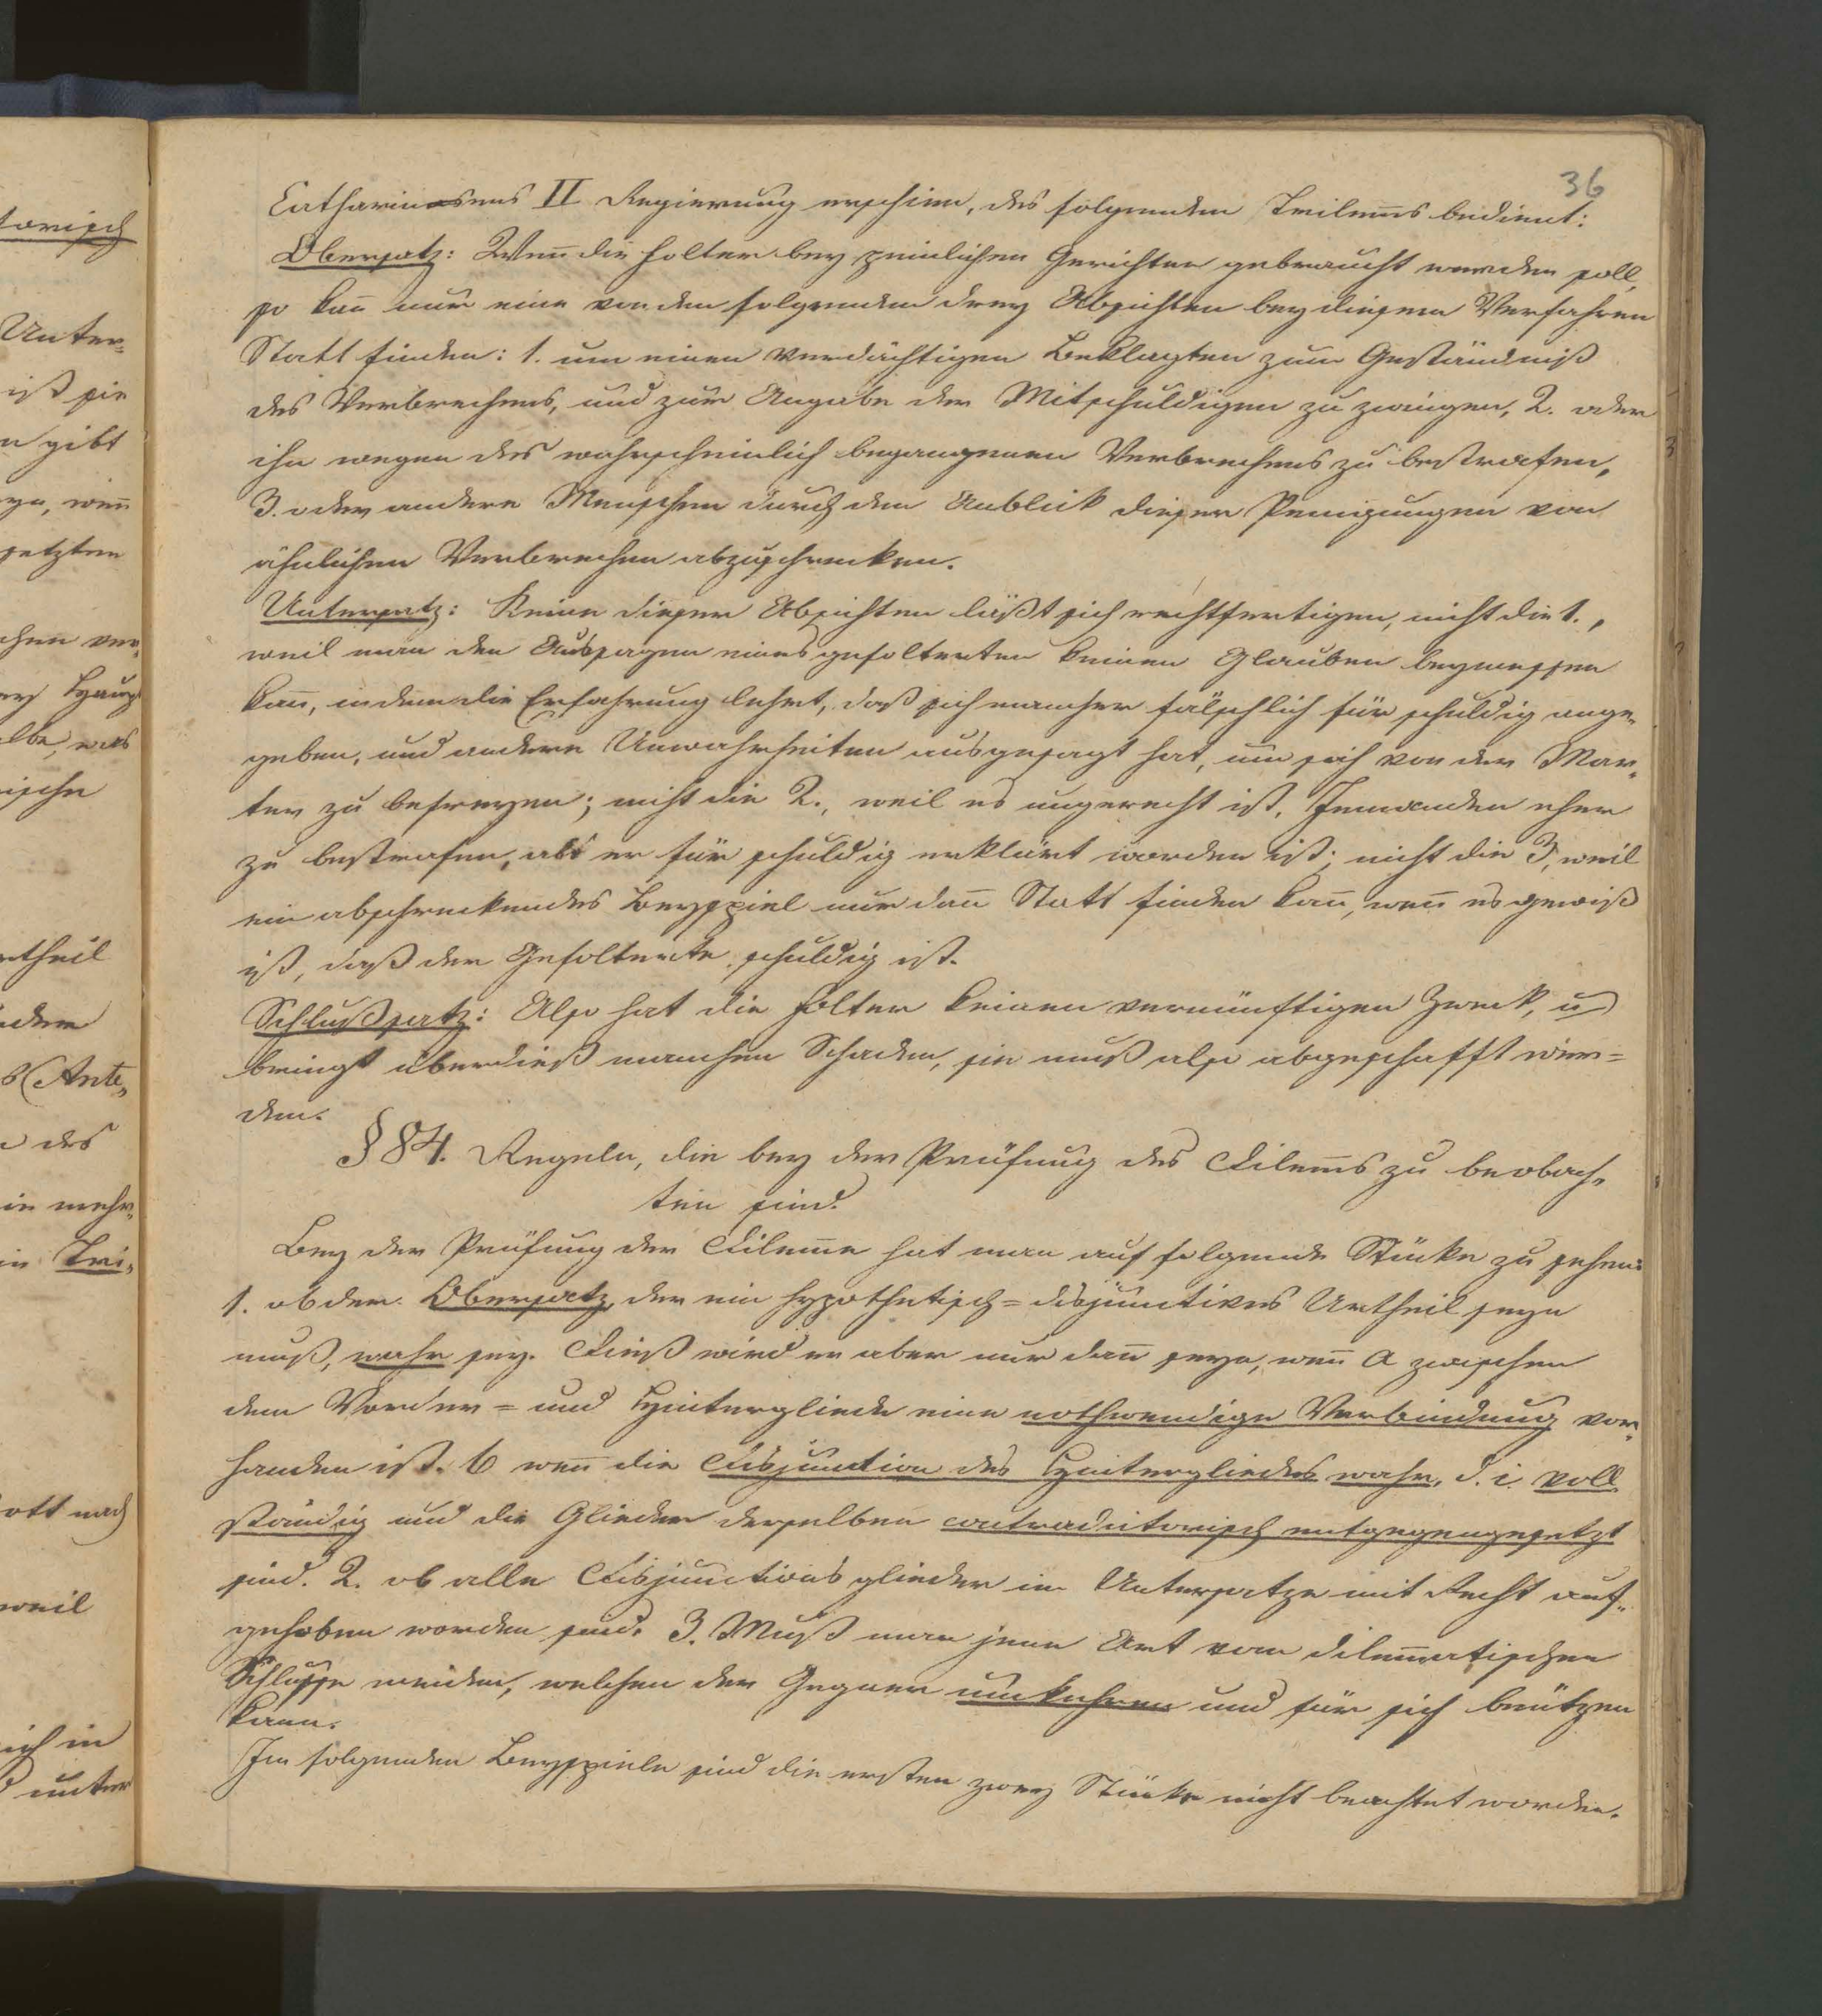 36
Catharinens II Regierung erschien, des folgenden Trilem̄s bedient:
Obersatz: Wen̄ die Folter bey peinlichen Gerichten gebraucht werden soll,
so kan̄ nur eine von den folgenden drey Absichten bey diesem Verfahren
Statt finden: 1. um einen verdächtigen Beklagten zum Geständniß
des Verbrechens, und zur Angabe der Mitschuldigen zu zwingen, 2. oder
ihn wegen des wahrscheinlich begangenen Verbrechens zu bestrafen,
3. oder andere Menschen durch den Anblick dieser Peinigungen von
ähnlichen Verbrechen abzuschrecken.
Untersatz: Keine dieser Absichten läßt sich rechtfertigen, nicht die 1.,
weil man den Aussagen eines gefolterten keinen Glauben beymessen
kan̄, indem die Erfahrung lehrt, daß sich mancher fälschlich für schuldig ange-
geben, und andere Unwahrheiten ausgesagt hat, um sich von der Mar-
ter zu befreyen; nicht die 2., weil es ungerecht ist, Jemanden eher
zu bestrafen, als er für schuldig erklärt worden ist; nicht die 3, weil
ein abschreckendes Beyspiel nur dan̄ Statt finden kan̄, wen̄ es gewiß
ist, daß der Gefolterte schuldig ist.
Schlußsatz: Also hat die Folter keinen vernünftigen Zweck, u
bringt überdieß manchen Schaden, sie muß also abgeschafft wer=
den.
§ 84. Regeln, die bey der Prüfung des Dilem̄s zu beobach-
ten sind.
Bey der Prüfung der Dilem̄e hat man auf folgende Stücke zu sehen:
1. ob der Obersatz, der ein hypothetisch=disjunctives Urtheil seyn
muß, wahr sey. Dieß wird er aber nur dan̄ seyn, wen̄ a zwischen
dem Vorder= und Hintergliede eine nothwendige Verbindung vor-
handen ist. b wen̄ die Disjunction des Hintergliedes wahr, d. i. voll
ständig und die Glieder derselben contradictorisch entgegengesetzt
sind. 2. ob alle Disjunctionsglieder im Untersatze mit Recht auf-
gehoben worden sind. 3. Muß man jene Art von dilem̄atischen
Schlusse meiden, welchen der Gegner umkehren und für sich benützen
kann.
Im folgenden Beyspiele sind die ersten zwey Stücke nicht beachtet worden.
torisch
Unter=
ist sie
n gibt
wen̄
setzten
Haupt
was
rtheil
(Ante-
des
in mehr-
in Tri-
Gott nach
weil
ich in
unter